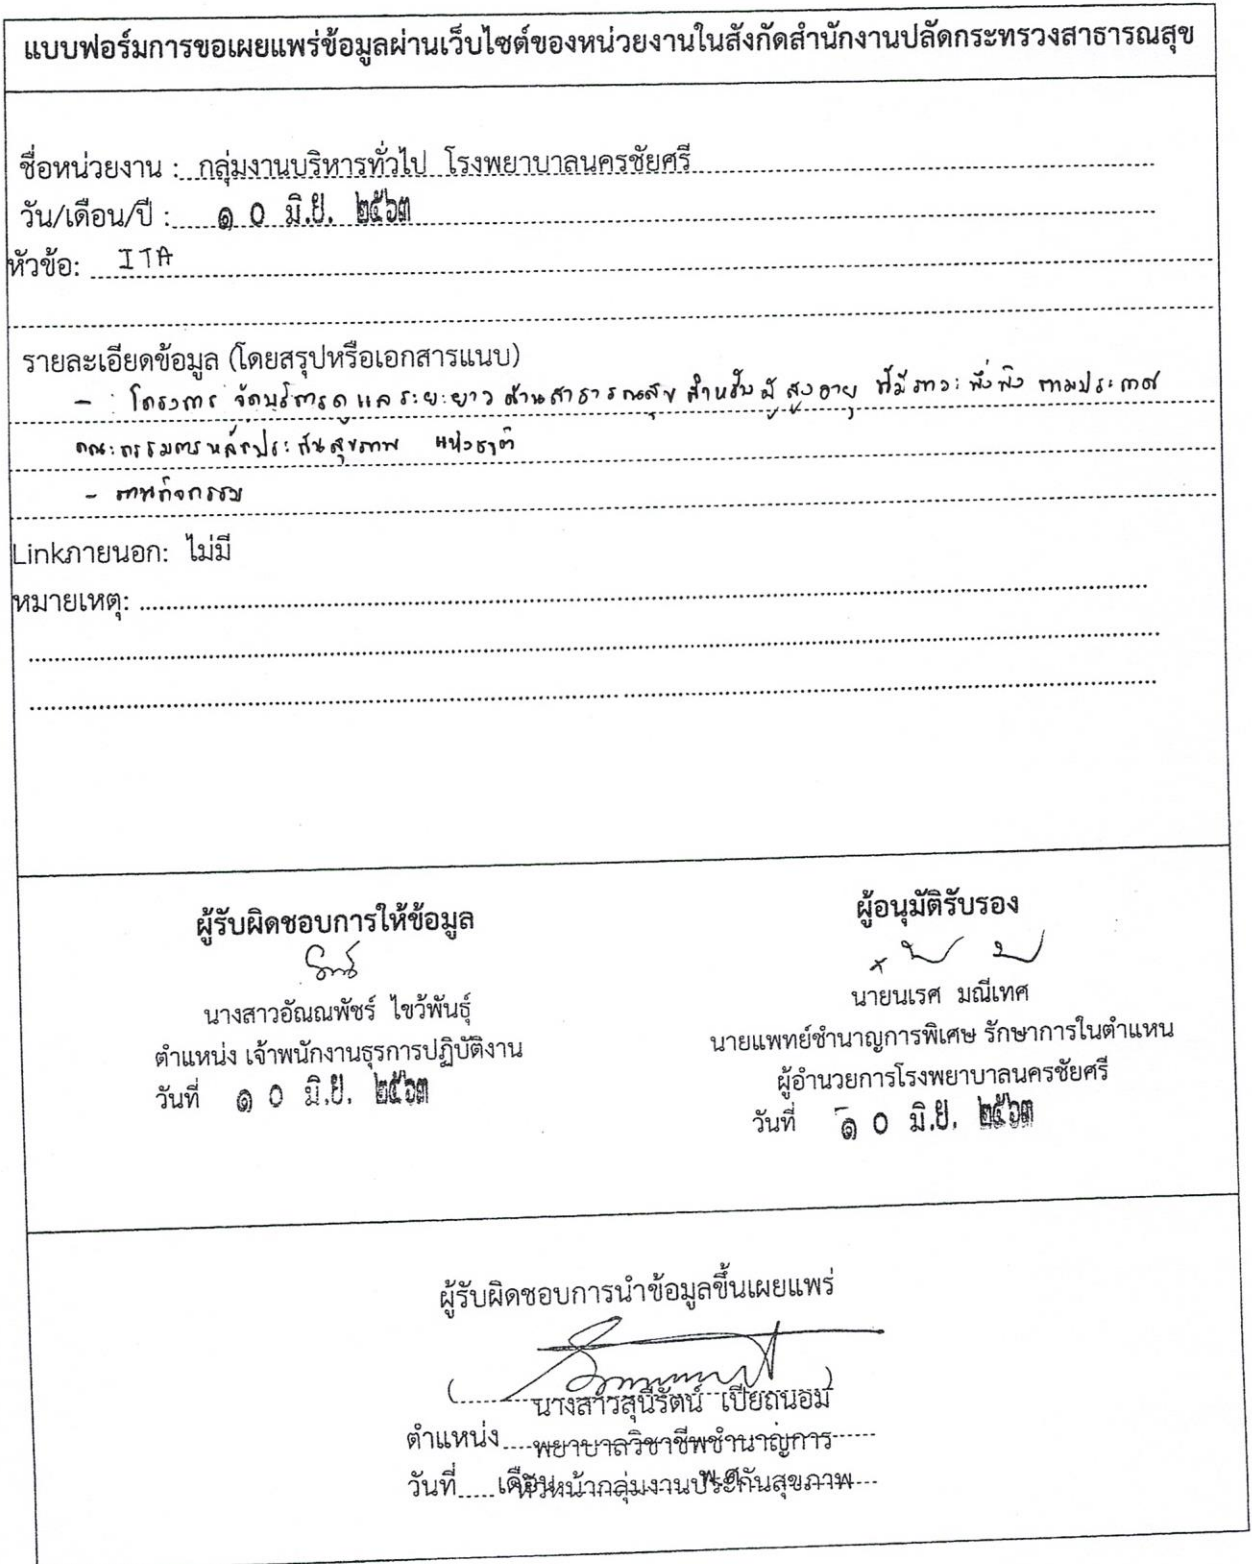 แบบฟอร์มการขอเผยแพร่ข้อมูลผ่านเว็บไซต์ของหน่วยงานในสังกัดสำนักงานปลัดกระทรวงสาธารณสุข
ชื่อหน่วยงาน : กลุ่มงานบริหารทั่วไป โรงพยาบาลนครชัยศรี
วัน/เดือน/ปี : ๑ ๐ มิ.ย. ๒๕๖๓
หัวข้อ: ITA
รายละเอียดข้อมูล (โดยสรุปหรือเอกสารแนบ)
- โครงการ จัดบริการดูแลระยะยาว ด้านสาธารณสุข สำหรับผู้สูงอายุ ที่มีภาวะพึ่งพิง ตามประกาศ
คณะกรรมการหลักประกันสุขภาพ แห่งชาติ
- ภาพกิจกรรม
Linkภายนอก: ไม่มี
หมายเหตุ:
ผู้รับผิดชอบการให้ข้อมูล
นางสาวอัณณพัชร์ ไขว้พันธุ์
ตำแหน่ง เจ้าพนักงานธุรการปฏิบัติงาน
วันที่ ๑ ๐ มิ.ย. ๒๕๖๓
ผู้อนุมัติรับรอง
นายนเรศ มณีเทศ
นายแพทย์ชำนาญการพิเศษ รักษาการในตำแหน
ผู้อำนวยการโรงพยาบาลนครชัยศรี
วันที่ ๑ ๐ มิ.ย. ๒๕๖๓
ผู้รับผิดชอบการนำข้อมูลขึ้นเผยแพร่
(นางสาวสุนีรัตน์ เปียถนอม)
ตำแหน่ง พยาบาลวิชาชีพชำนาญการ
วันที่ เดือน พ.ศ.
หัวหน้ากลุ่มงานประกันสุขภาพ